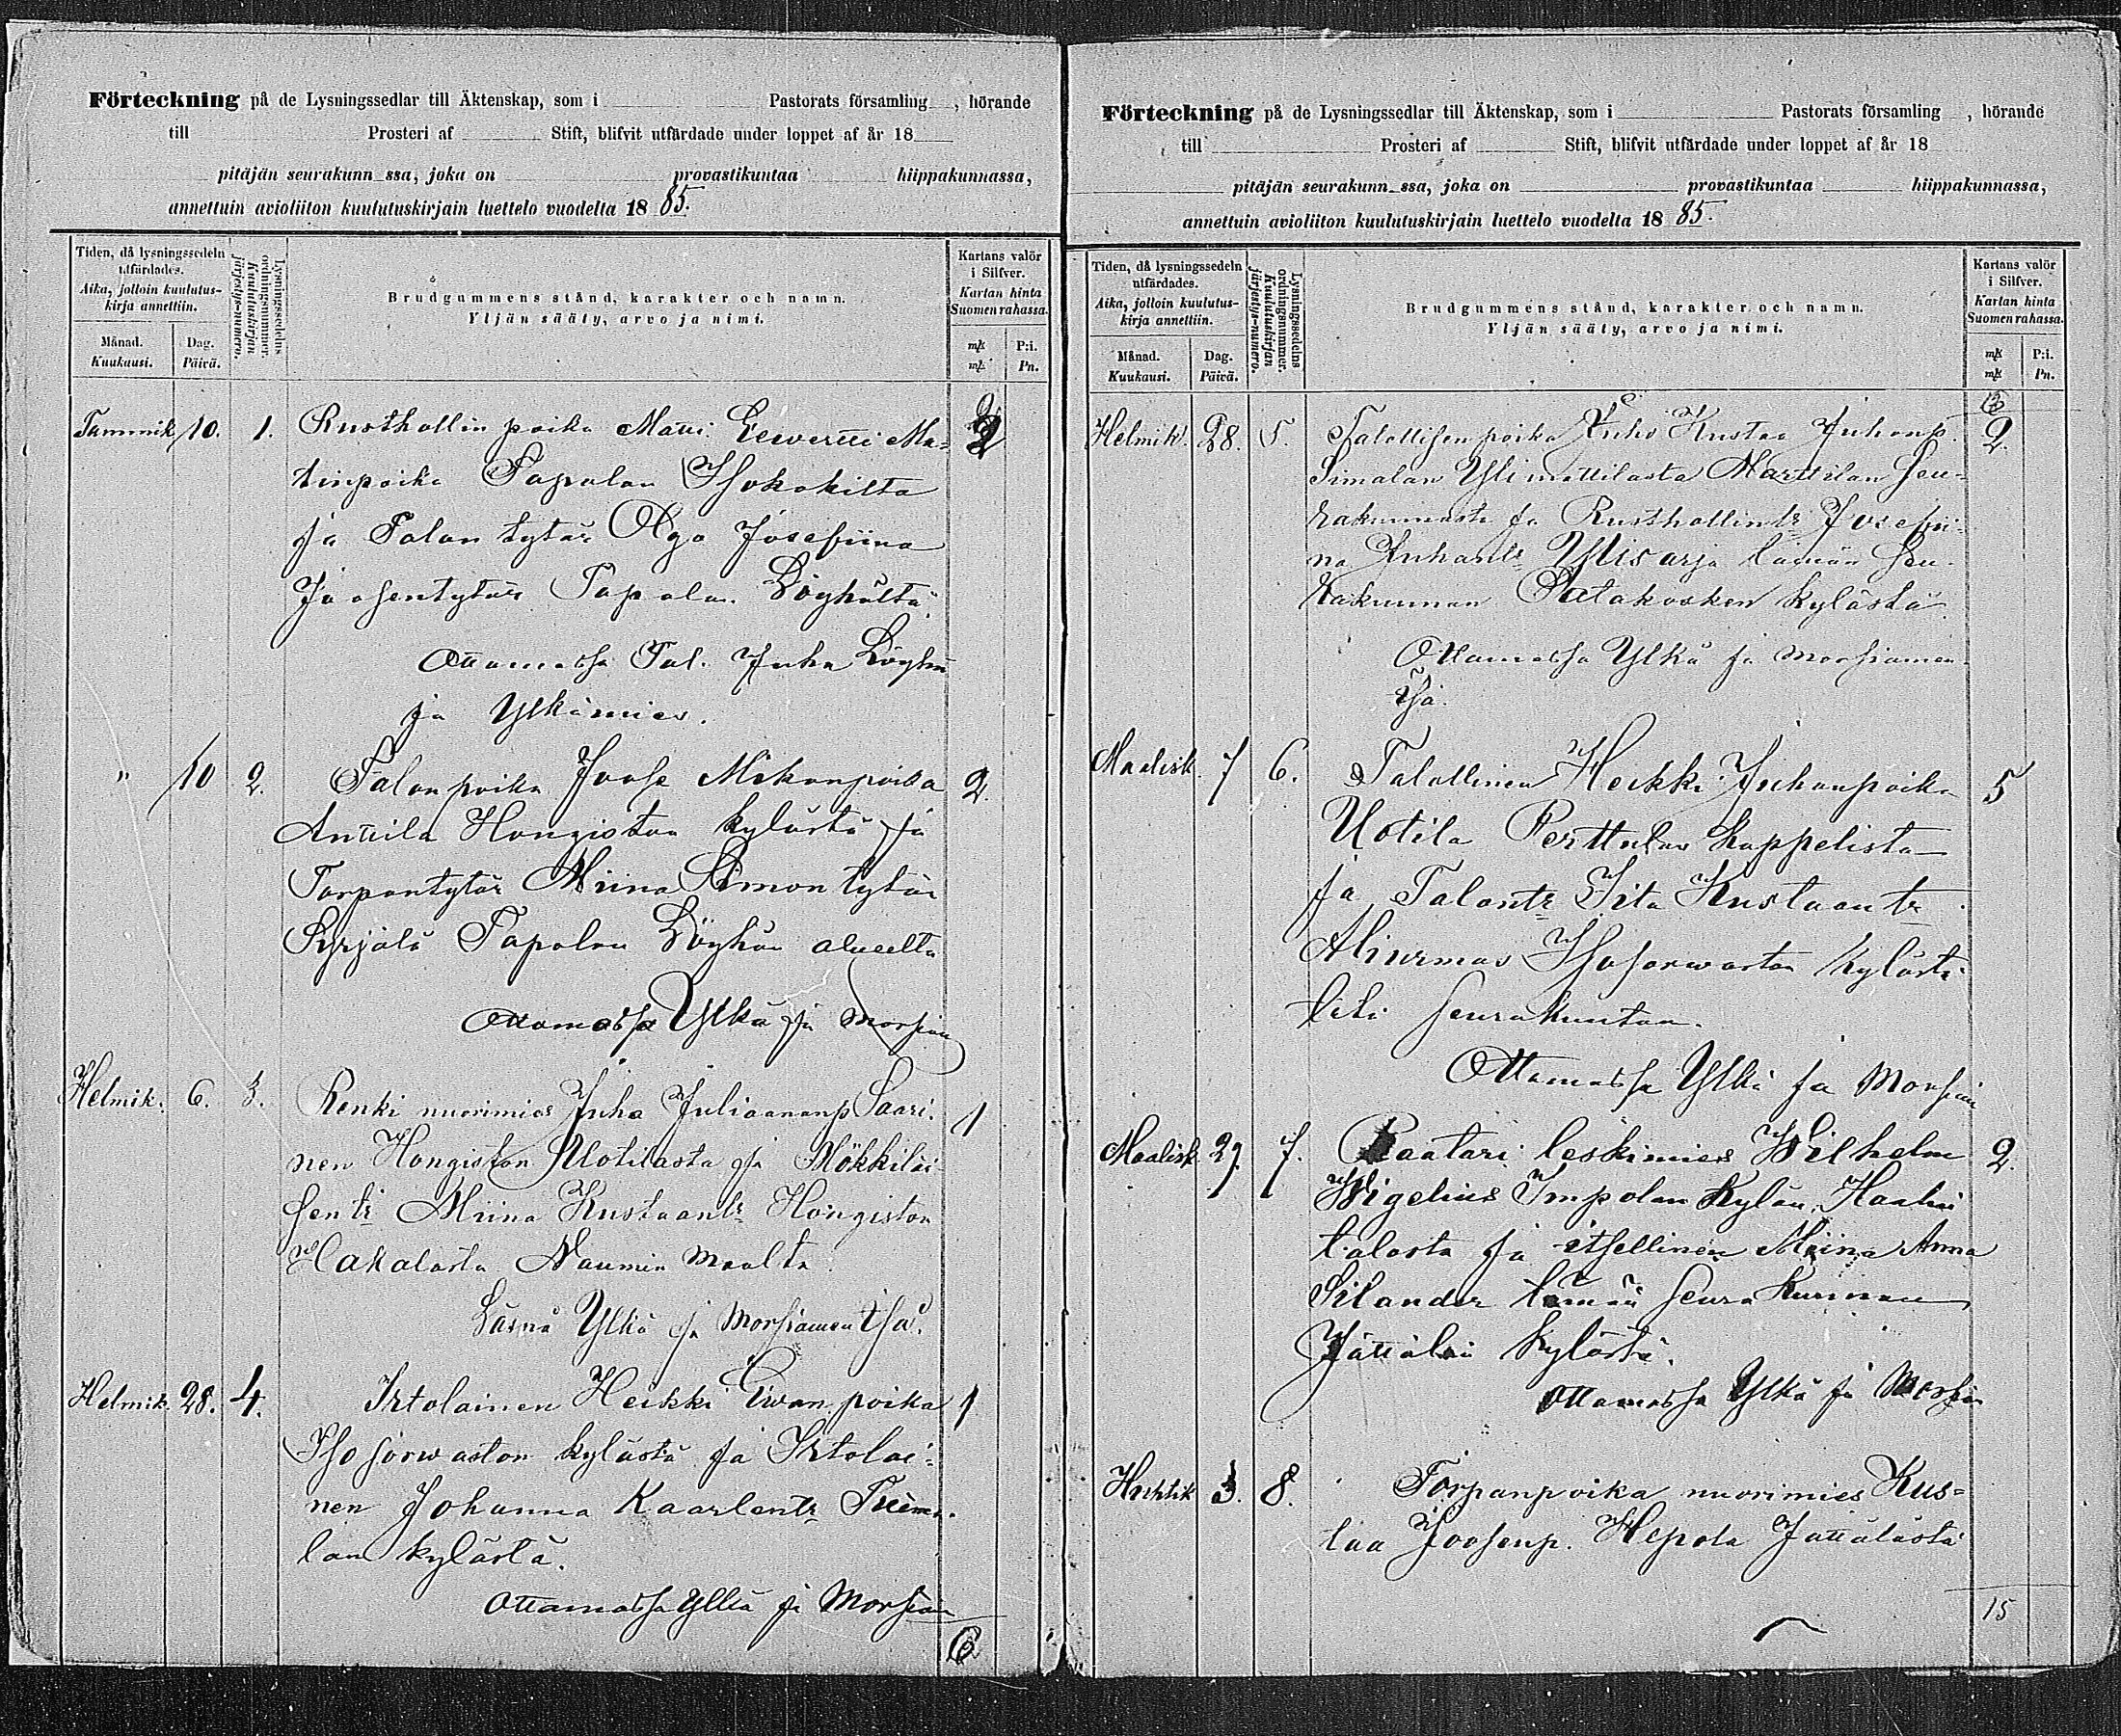 Förteckning på de Lysningssedlar till Äktenskap, som i Pastorats församling , hörande
till Prosteri af Stift, blifvit utfärdade under loppet af år 18
pitäjän seurakunn ssa, joka on provastikuntaa hiippakunnassa,
annettuin avioliiton kuulutuskirjain luettelo vuodelta 1885.
Tiden, då lysningssedeln
utfärdades.
Aika, jolloin kuulutus-
kirja annettiin.
Månad.
Kuukausi.
Dag.
Päivä.
Lysningssedelns
ordningsnummer.
Kuulutuskirjan
järjestys-numero.
Brudgummens stånd, karakter och namn.
Yljän sääty, arvo ja nimi.
Kartans valör
i Silfver.
Kartan hinta
Suomen rahassa.
mk P:i.
mk Pn.
Tammik. 10. 1. Rusthollin poika Matti Eewertti Ma- 2
tinpoika Papolan Isokokilta
ja Talon tytär Olga Josefiina
Joosentytär Papolan Löyhältä.
Ottamassa Tal. Juha Löyhä
ja Ylkämies.
" 10 2. Talonpoika Joose Mikonpoika 2.
Anttila Hongiston kylästä ja
Torpantytär Miina Simontytär
Syrjälä Papolan Löyhän alueelta
Ottamassa Ylkä ja Morsian
Helmik. 6. 3. Renki nuorimies Juha Juliaananp Saari- 1
nen Hongiston Uotilasta ja Mökkiläi-
sentr Miina Kustaantr Hongiston
Hakalasta Naumin maalta.
Läsnä Ylkä ja Morsiamen isä.
Helmik. 28. 4. Irtolainen Heikki Eewanpoika 1
Isosorwaston kylästä ja Irtolai-
nen Johanna Kaarlentr Tuima-
lan kylästä.
Ottamassa Ylkä ja Morsian
6
Förteckning på de Lysningssedlar till Äktenskap, som i Pastorats församling , hörande
till Prosteri af Stift, blifvit utfärdade under loppet af år 18
pitäjän seurakunn ssa, joka on provastikuntaa hiippakunnassa,
annettuin avioliiton kuulutuskirjain luettelo vuodelta 1885.
Tiden, då lysningssedeln
utfärdades.
Aika, jolloin kuulutus-
kirja annettiin.
Månad.
Kuukausi.
Dag.
Päivä.
Lysningssedelns
ordningsnummer.
Kuulutuskirjan
järjestys-numero.
Brudgummens stånd, karakter och namn.
Yljän sääty, arvo ja nimi.
Kartans valör
i Silfver.
Kartan hinta
Suomen rahassa.
mk P:i.
mk Pn.
Helmik. 28. 5. Talollisen poika Juho Kustaa Juhanp. 2.
Simalan Ylimattilasta Marttilan Seu-
rakunnasta ja Rusthollintr Josefii-
na Juhantr Ylisarja tämän Seu-
rakunnan Patakosken kylästä
Ottamassa Ylkä ja morsiamen
isä.
Maalisk. 7 6. Talollinen Heikki Juhanpoika 5
Uotila Perttulan Kappelista
ja Talontr Iita Kustaantr
Aliurmas Isosorwaston kylästä
tätä Seurakuntaa.
Ottamassa Ylkä ja Morsian
Maalisk. 29. 7. Raatari leskimies Wilhelm 2.
Wigelius Impolan Kylän Haahti
talosta ja itsellinen Miina Anna
Silander tämän Seurakunnan
Jättälän kylästä.
Ottamassa Ylkä ja Morsian
Huhtik 3. 8. Torpanpoika nuorimies Kus-
taa Joosenp. Hepola Jättälästä
15